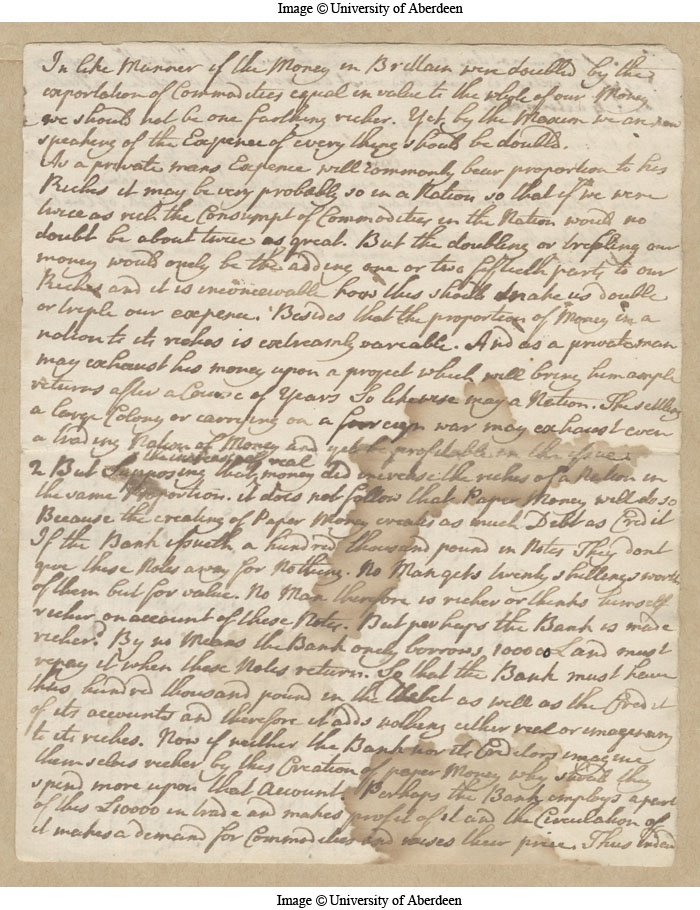 Image © University of Aberdeen
In like Manner if the Money in Brittain were doubled by the
exportation of Commodities equal in value to the whole of our Money
we should not be one farthing richer. Yet by the Maxim we are now
speaking of the Expence of every thing should be doubled.
As a private mans Expence will commonly bear proportion to his
Riches it may be very probably so in a Nation so that if we were
twice as rich the Consumpt of Commodities in the Nation would no
doubt be about twice as great. But the doubling or trebling our
money would onely be the adding one or two fiftieth parts to our
Riches and it is inconceivable how this should make us double
or triple our expence. Besides that the proportion of Money in a
nation to its riches is extreamly variable. And as a private man
may exhaust his money upon a project which will bring him ample
returns after a Course of Years So likewise may a Nation. The settling
a large Colony or carrying on a foreign war may exhaust even
a trading Nation of Money and yet be profitable in the issue
the increase of real
2 But Supposing that money did increase the riches of a Nation in
the same Proportion. it does not follow that Paper Money will do so
Because the creating of Paper Money creates as much Debt as Credit
If the Bank issueth a hundred thousand pound in Notes They dont
give these Notes away for Nothing. No Man gets twenty shillings worth
of them but for value. No Man therefore is richer or thinks himself
richer on account of these Notes. But perhaps the Bank is made
richer? By no Means the Bank onely borrows 10000 L and must
repay it when these Notes return. So that the Bank must have
this hundred thousand pound in the Debit as well as the Credit
of its accounts and therefore it adds nothing either real or imaginary
to its riches. Now if neither the Bank nor its Creditors imagine
themselves richer by this Creation of paper Money why should they
spend more upon that Account Perhaps the Bank employs a part
of this £10000 in trade and makes profit of it and the Circulation of
it makes a demand for Commodities and raises their price. This indeed
Image © University of Aberdeen